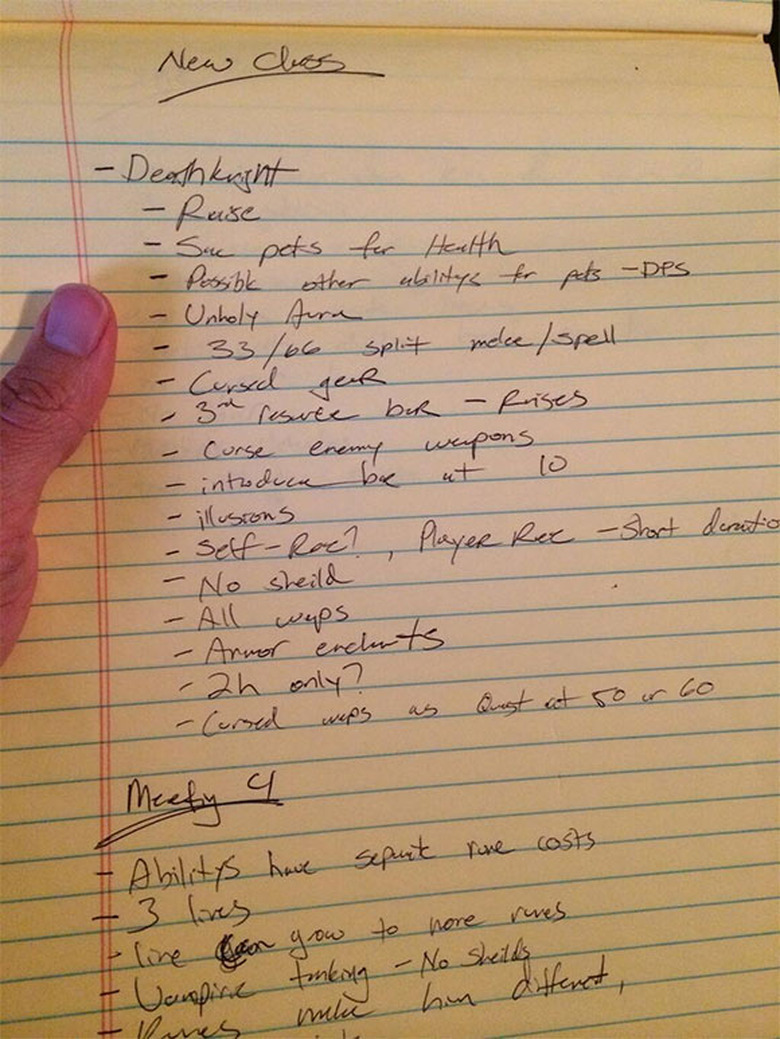 New Class
- Deathknight
- Raise
- Sac pets for Health
- Possible other abilitys for pets - DPS
- Unholy Aura
- 33/66 split melee/spell
- Cursed gear
- 3rd resource bar - Raises
- Curse enemy weapons
- introduce bar at 10
- illusions
- Self-Rez?, Player Rez - Short duratio
- No sheild
- All weps
- Armor enchants
- 2h only?
- Cursed weps as Quest at 50 or 60
Meeting 4
- Abilitys have seperate rune costs
- 3 lives
- line can grow to more runes
- Vampire tanking - No Sheilds
- Runes make him different,